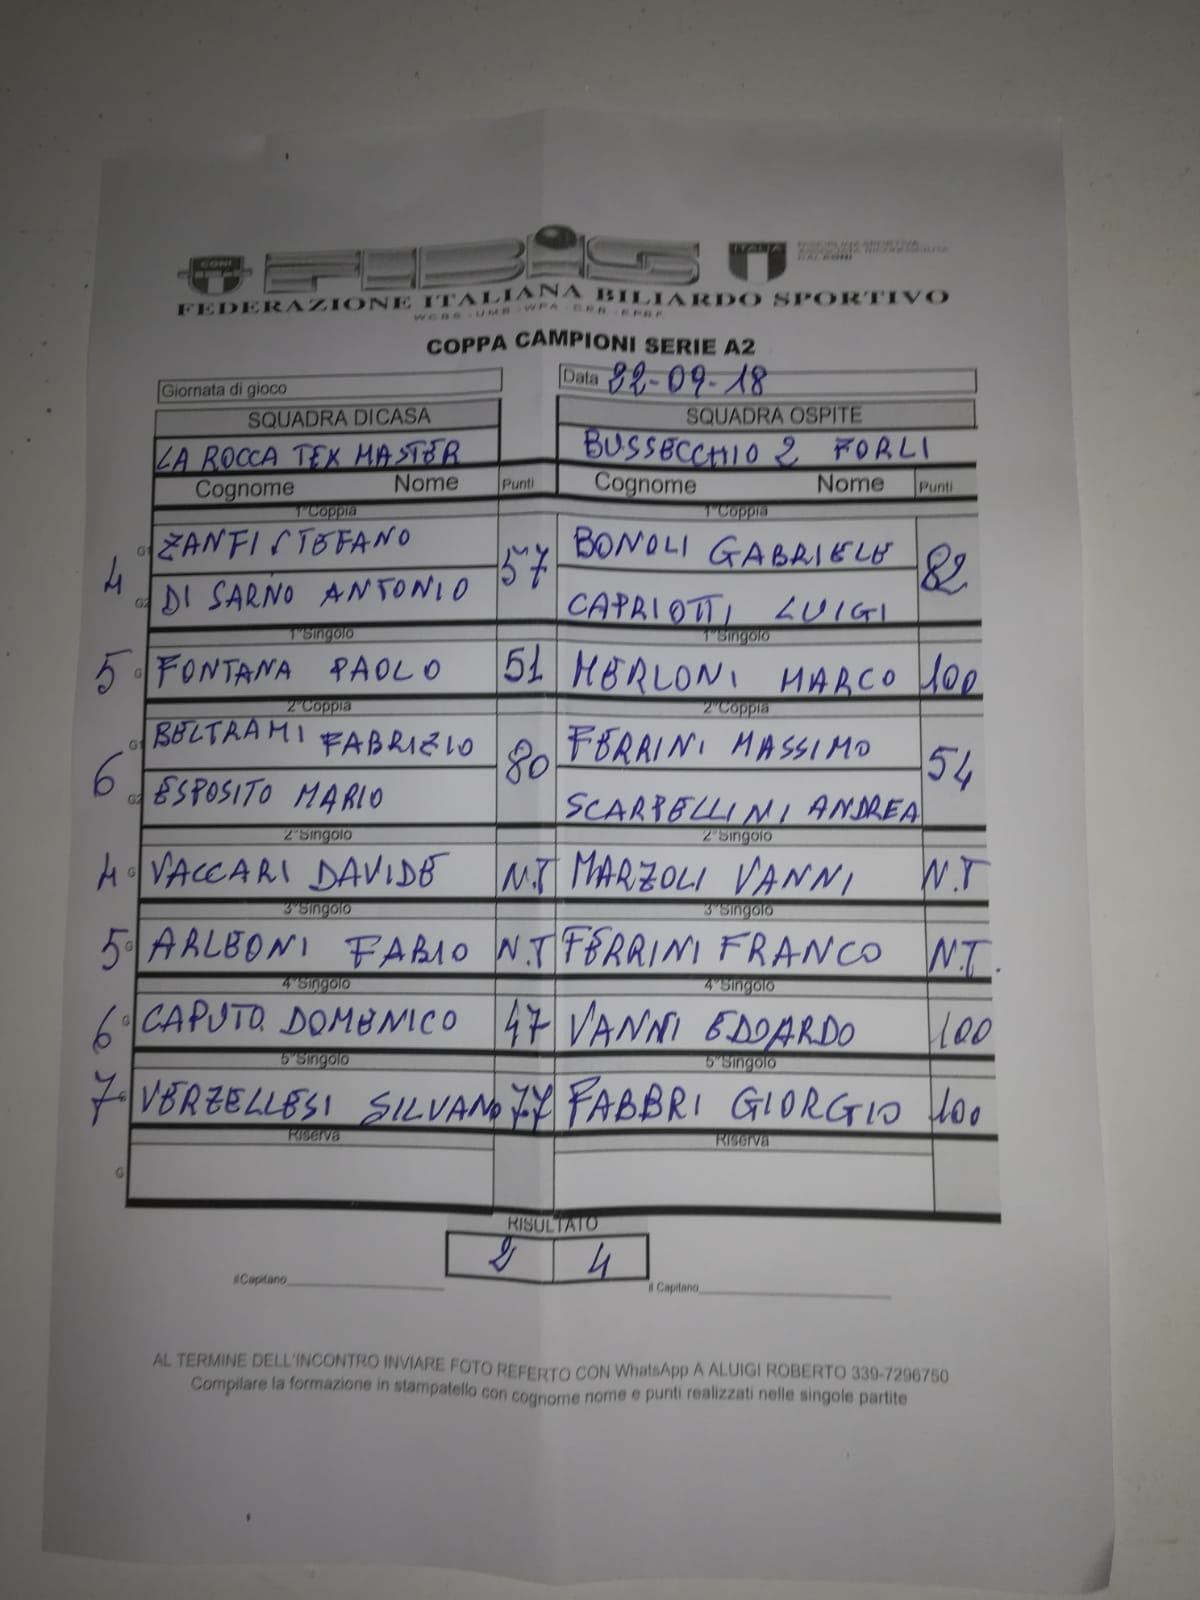 CONI FIBIS ITALIA
FEDERAZIONE ITALIANA BILIARDO SPORTIVO
COPPA CAMPIONI SERIE A2
Giornata di gioco Data 22-09-18
SQUADRA DI CASA SQUADRA OSPITE
LA ROCCA TEX MASTER BUSSECCHIO 2 FORLI
Cognome Nome Punti Cognome Nome Punti
1°Coppia 1°Coppia
G1 ZANFI STEFANO BONOLI GABRIELE
4 57 82
G2 DI SARNO ANTONIO CAPRIOTTI LUIGI
1°Singolo 1°Singolo
5 G FONTANA PAOLO 51 MERLONI MARCO 100
2°Coppia 2°Coppia
G1 BELTRAMI FABRIZIO FERRINI MASSIMO
6 80 54
G2 ESPOSITO MARIO SCARPELLINI ANDREA
2°Singolo 2°Singolo
4 G VACCARI DAVIDE N.T MARZOLI VANNI N.T
3°Singolo 3°Singolo
5 G ARLEONI FABIO N.T FERRINI FRANCO N.T.
4°Singolo 4°Singolo
6 G CAPUTO DOMENICO 47 VANNI EDOARDO 100
5°Singolo 5°Singolo
7 G VERZELLESI SILVANO 77 FABBRI GIORGIO 100
Riserva Riserva
G
RISULTATO
2 4
il Capitano il Capitano
AL TERMINE DELL'INCONTRO INVIARE FOTO REFERTO CON WhatsApp A ALUIGI ROBERTO 339-7296750
Compilare la formazione in stampatello con cognome nome e punti realizzati nelle singole partite